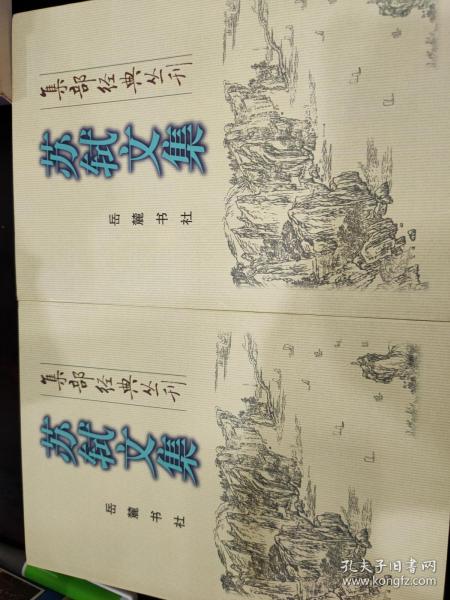 集部经典丛刊
苏轼文集
岳麓书社
集部经典丛刊
苏轼文集
岳麓书社
孔夫子旧书网
www.kongfz.com